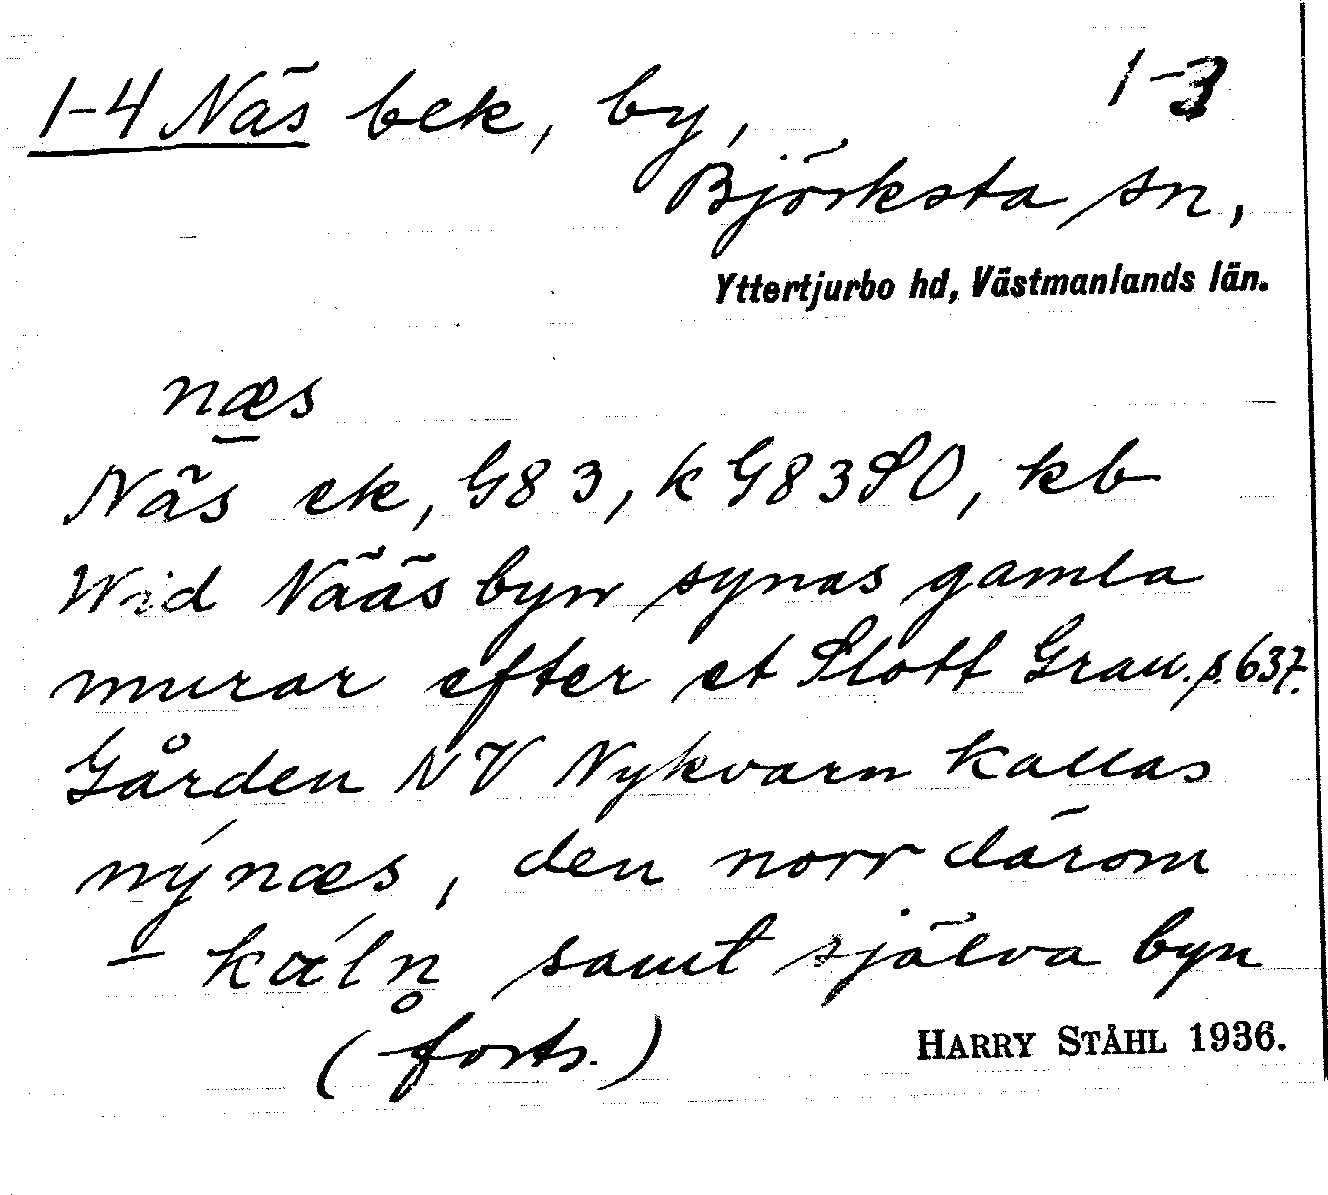 1-4 Näs bek, by, 1-3
Björksta sn,
Yttertjurbo hd, Västmanlands län.
næs
Näs ek, G83, k G83SO, kb
Wid Nääs byn synas gamla
murar efter et Slott Grau. s. 637.
Gården NV Nykvarn kallas
nýnæs, den norr därom
– kálṇ samt själva byn
(forts.) HARRY STÅHL 1936.